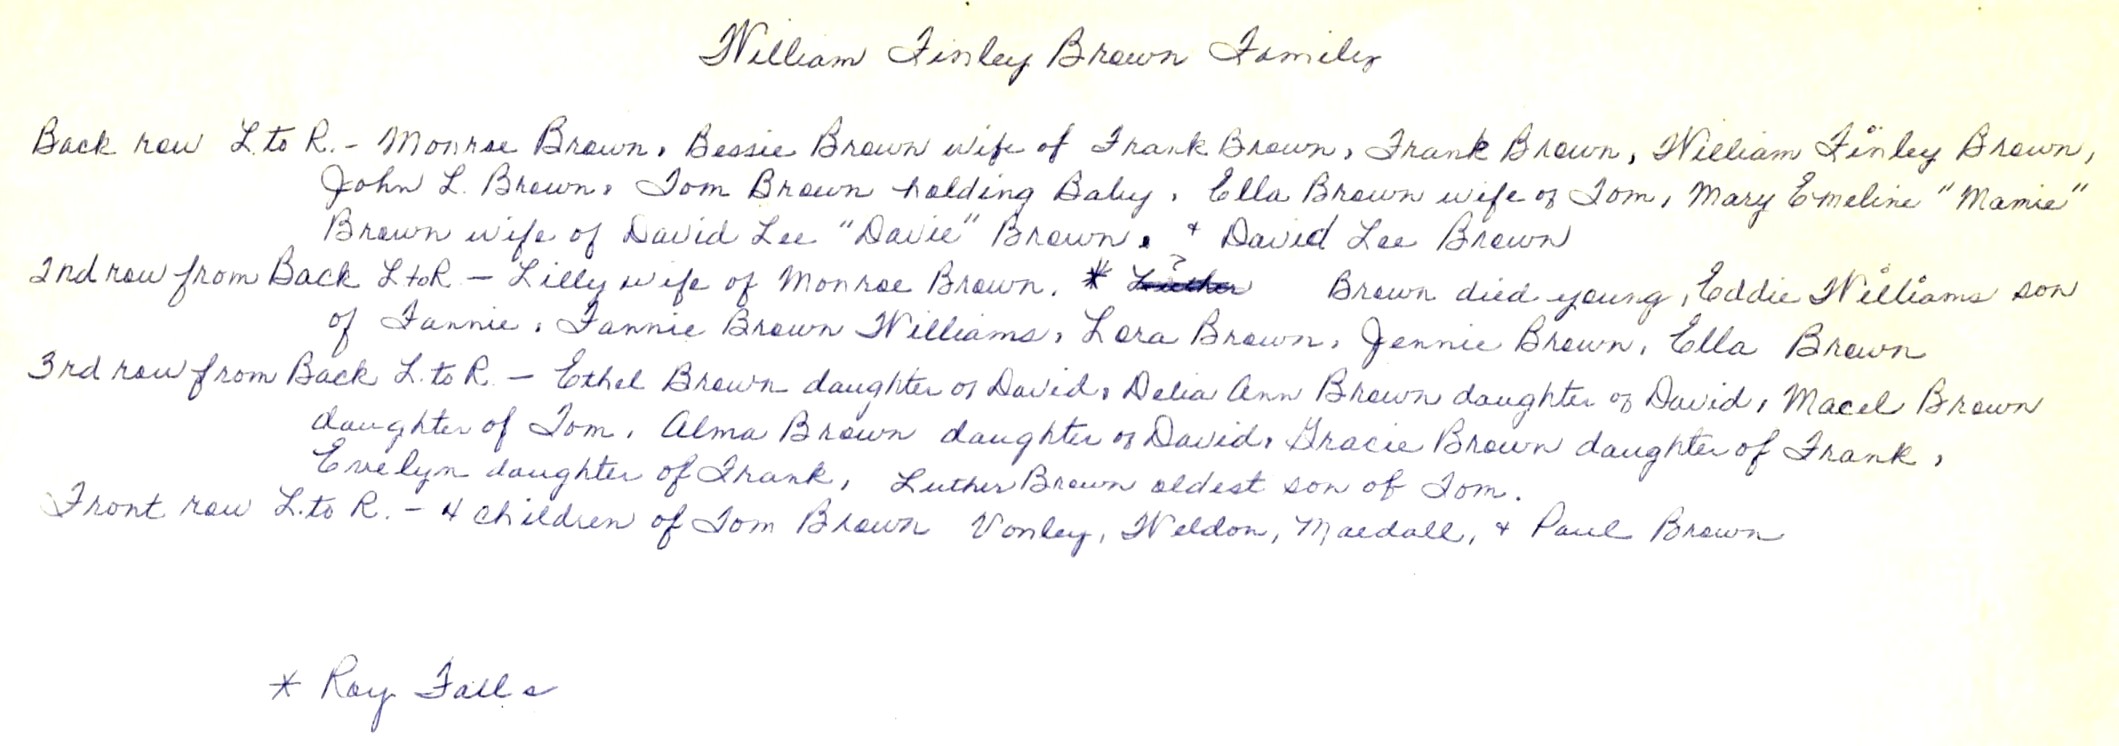 William Finley Brown Family
Back row L. to R. - Monroe Brown, Bessie Brown wife of Frank Brown, Frank Brown, William Finley Brown,
John L. Brown, Tom Brown holding Baby, Ella Brown wife of Tom, Mary Emeline "Mamie"
Brown wife of David Lee "Davie" Brown, + David Lee Brown
2nd row from Back L to R - Lilly wife of Monroe Brown, * ? Luther Brown died young, Eddie Williams son
of Fannie, Fannie Brown Williams, Lora Brown, Jennie Brown, Ella Brown
3rd row from Back L. to R. - Ethel Brown daughter of David, Delia Ann Brown daughter of David, Macel Brown
daughter of Tom, Alma Brown daughter of David, Gracie Brown daughter of Frank,
Evelyn daughter of Frank, Luther Brown oldest son of Tom.
Front row L. to R. - 4 children of Tom Brown Vonley, Weldon, Maedall, + Paul Brown
* Roy Falls